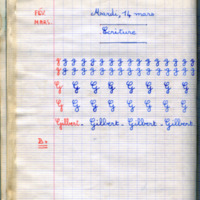 FÉV. Mardi, 14 mars
MARS. Écriture
G G G G G G G G G G G G G
G G G G G G G G G G G G G
G G G G G G G G
G G G G G G G G
Gilbert - Gilbert - Gilbert - Gilbert